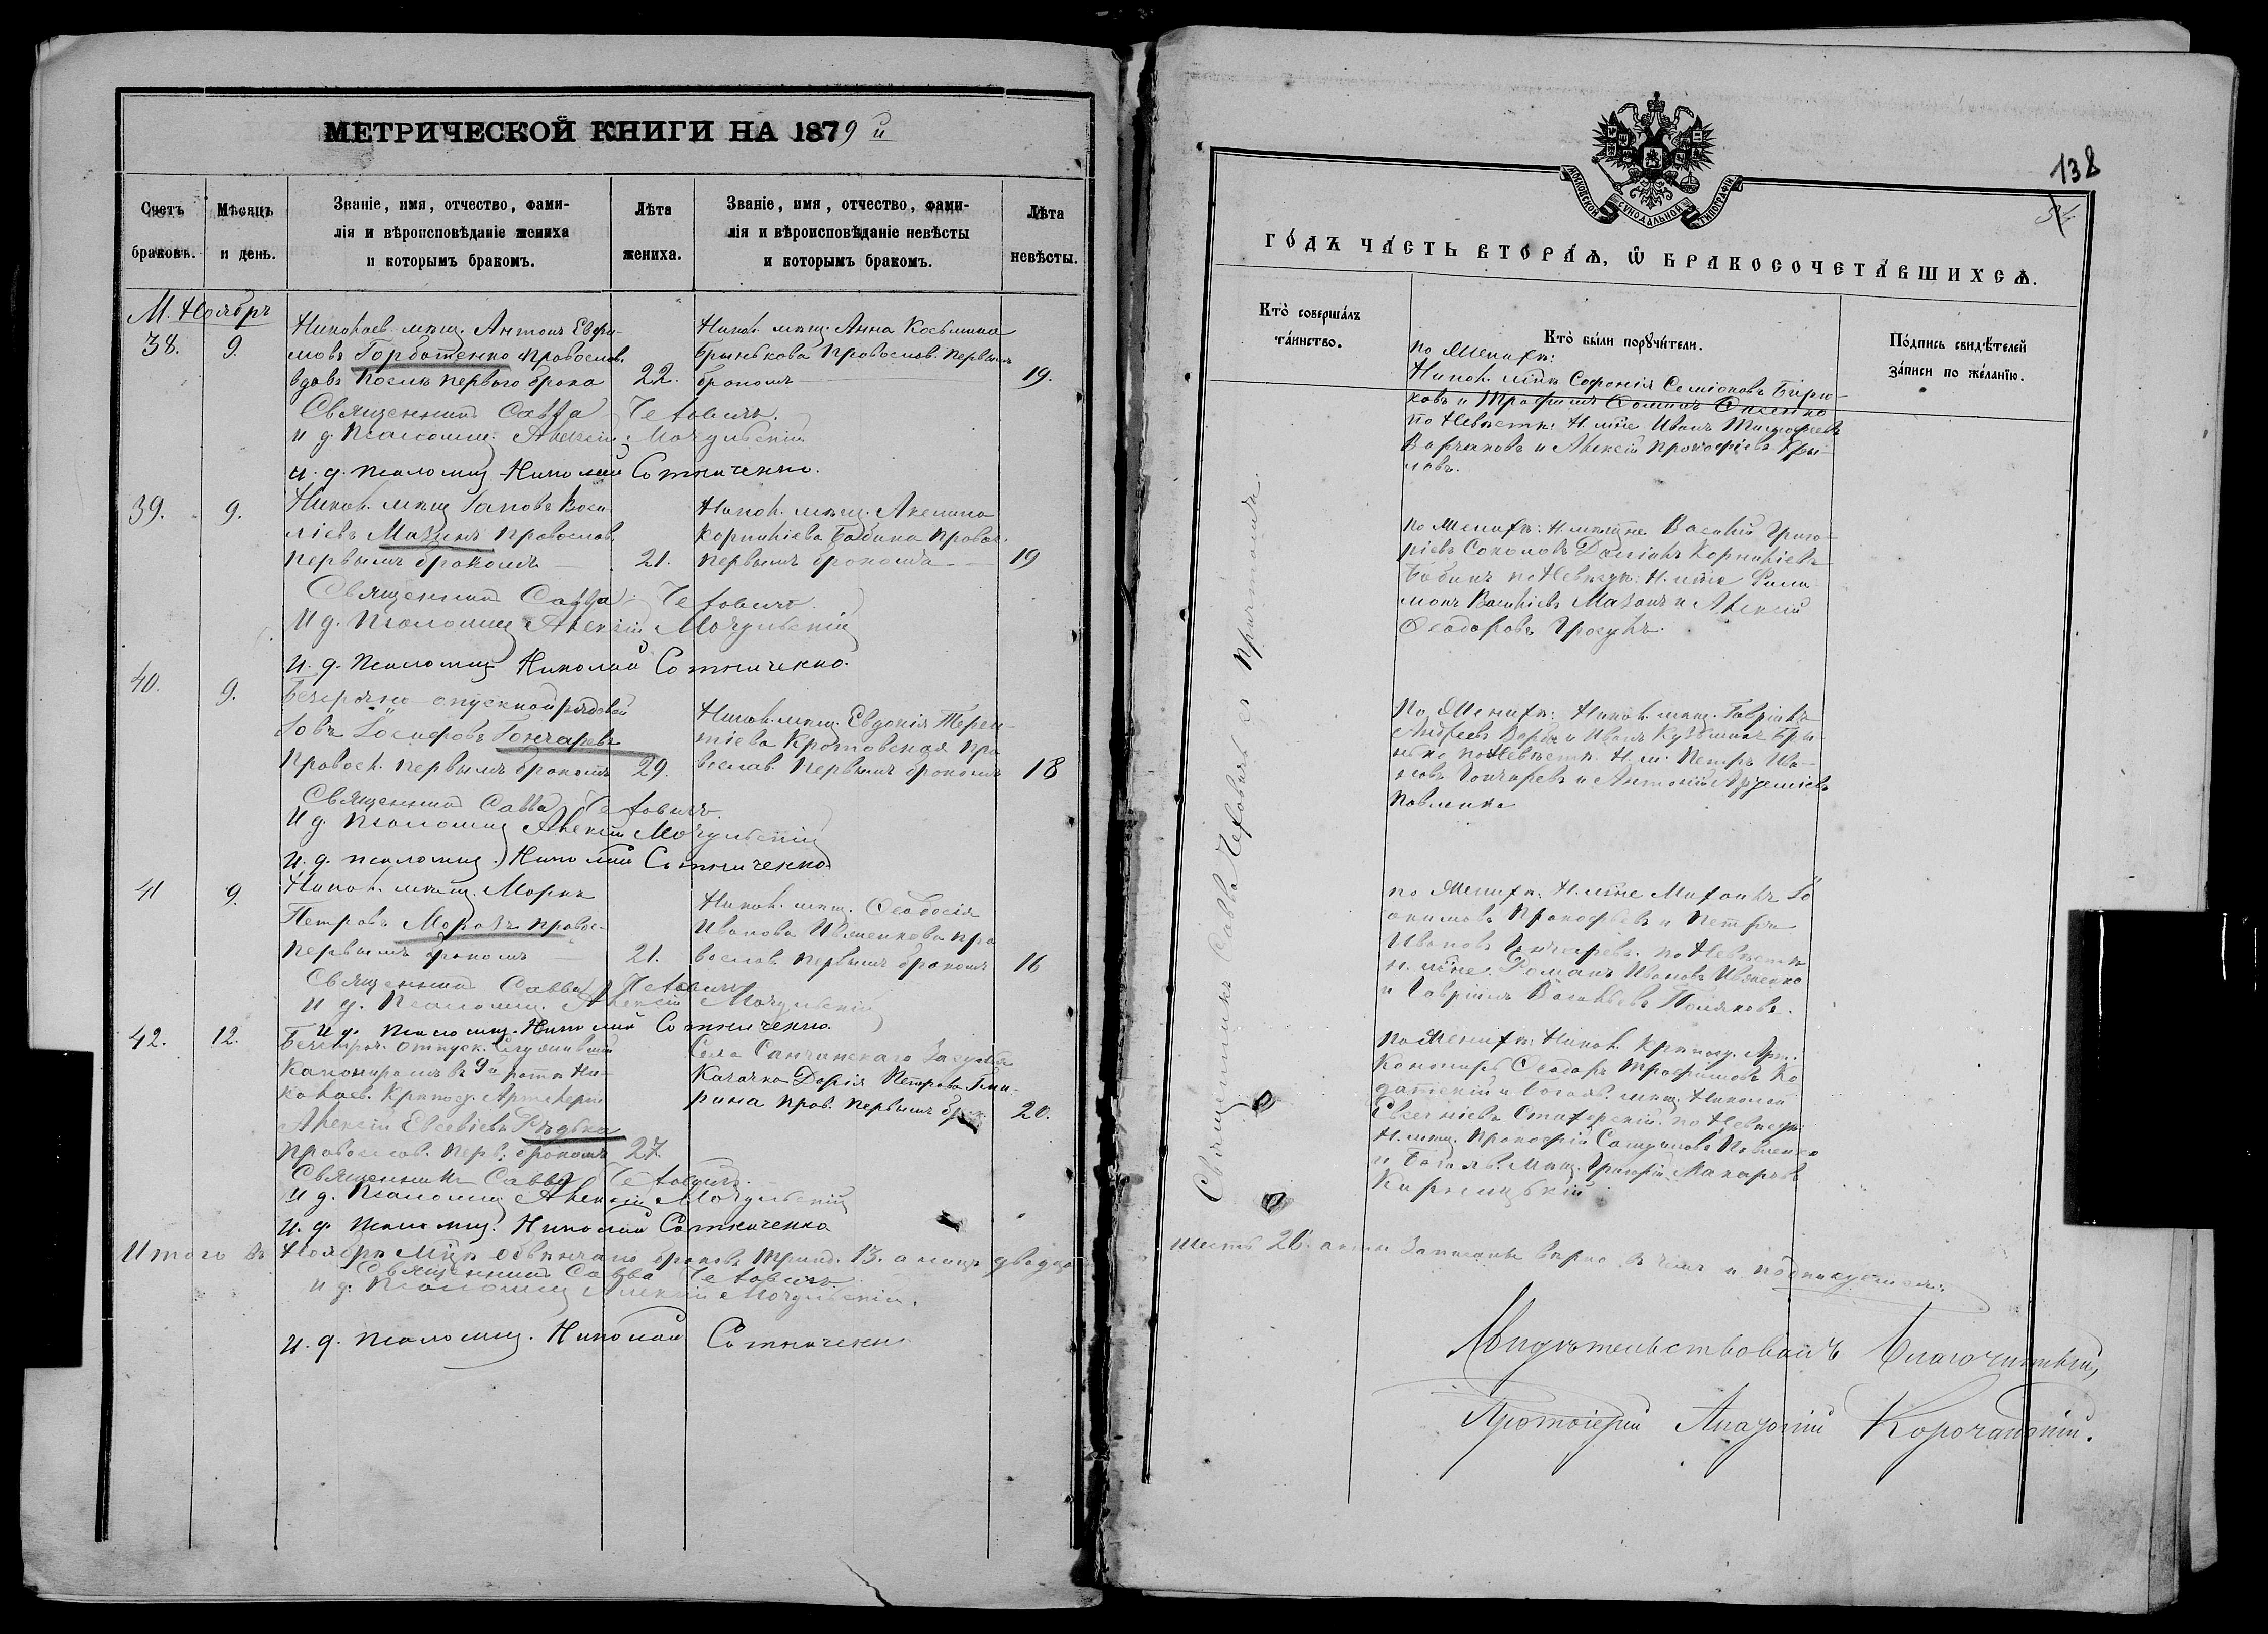 МЕТРИЧЕСКОЙ КНИГИ НА 1879 й
Счетъ браковъ.
Мѣсяцъ и день.
Званіе, имя, отчество, фами-
лія и вѣроисповѣданіе жениха
и которымъ бракомъ.
Лѣта
жениха.
Званіе, имя, отчество, фами-
лія и вѣроисповѣданіе невѣсты
и которымъ бракомъ.
Лѣта
невѣсты.
М. Ноябрь
38. 9.
Николаев. мѣщ. Антонъ Ефи-
мовъ Горбатенко православ.
вдовъ послѣ перваго брака 22.
Никол. мѣщ. Анна Косьмина
Брынькова православ. первымъ
бракомъ 19.
Священникъ Савва Четовичъ.
И д. Псаломщ. Алексій Мочульскій
И. д. псаломщ. Николай Сотниченко.
39. 9.
Никол. мѣщ. Іаковъ Васи
ліевъ Мазанъ православ.
первымъ бракомъ 21.
Никол. мѣщ. Акилина
Корниліева Бабина правос.
первымъ бракомъ 19
Священникъ Савва Четовичъ.
И д. Псаломщ. Алексій Мочульскій
И. д. псаломщ. Николай Сотниченко.
40. 9.
Безсрочно отпускной рядовой
Іовъ Іосифовъ Гончаревъ
правосл. первымъ бракомъ 29.
Никол. мѣщ. Евдокія Терен-
тіева Кротовская пра
вослав. первымъ бракомъ 18
Священникъ Савва Четовичъ.
И д. Псаломщ. Алексій Мочульскій
И. д. псаломщ. Николай Сотниченко.
41 9.
Никол. мѣщ. Маркъ
Петровъ Морозъ правос-
первымъ бракомъ 21.
Никол. мѣщ. Ѳеодосія
Иванова Ивженкова пра
вослав. первымъ бракомъ 16
Священникъ Савва Четовичъ
И д. Псаломщ. Алексій Мочульскій
И д. псаломщ. Николай Сотниченко.
42. 12.
Безсроч. отпуск. служившій
Канониромъ въ 9й ротѣ Ни-
колаев. Крѣпост. Артилеріи
Алексій Евсевіевъ Рѣдька
православ. перв. бракомъ 27.
Села
Качачка Дарія Петрова
рина прав. первымъ брак. 20.
Священникъ Савва Четовичъ.
И д. Псаломщ. Алексій Мочульскій
И. д. псаломщ. Николай Сотниченко
Итого въ Ноябрѣ м-цѣ обвѣнчано браковъ тринад. 13. а лицъ двадца
Священникъ Савва Четовичъ.
и д. Псаломщ. Алексій Мочульскій.
И. д. псаломщ. Николай Сотниченко
МОСКОВСКОЙ СѴНОДАЛЬНОЙ ТИПОГРАФІИ
138
ГО́ДЪ ЧА́СТЬ ВТОРА́Ѧ, Ѿ БРАКОСОЧЕТА́ВШИХСѦ.
Кто̀ соверша́лъ
та́инство.
Кто̀ бы́ли порꙋчи́тели.
По́дпись свидѣ́телей
за́писи по жела́нїю.
по Женихѣ:
Никол. мѣщ. Софонія Семіоновъ Бирю-
ковъ и Трофимъ Ѳоминъ
по Невѣстѣ: Н. мѣщ. Иванъ Тимофеевъ
и Алексій Прокофіевъ Кры-
ловъ.
по Женихѣ: Н. мѣщане Василій Григо-
ріевъ Соколовъ Даміанъ Корниліевъ
Бабинъ по Невѣстѣ: Н. мѣщ. Фили
монъ Васильевъ Мазанъ и Алексій
Ѳеодоровъ
По Женихѣ: Никол. мѣщ. Гавріилъ
Андреевъ и Иванъ Кузьминъ Бры-
нько по Невѣстѣ: Н. м. Петръ Ива-
новъ Гончаревъ и Антоній
Павленко
по Женихѣ: Н. мѣщ. Михаилъ Іо
акимовъ Прокофьевъ и Петръ
Ивановъ Гончаревъ. по Невѣстѣ
н. мѣщ. Романъ Ивановъ Ивженко
и Гавріилъ Васильевъ Поляковъ.
По Женихѣ: Никол. крѣпост. Арт.
Канониръ Ѳеодоръ Трофимовъ Ко
и мѣщ. Николай
Евгеніевъ по Невѣстѣ
Н. мѣщ. Прокофій Павленко
и мѣщ. Григорій Макаровъ
Священникъ Савва Четовичъ съ причтомъ.
шесть 26. акты записаны вѣрно въ чемъ и подписуемся:
Свидѣтельствовалъ Благочинный,
Протоіерей Корочанскій.